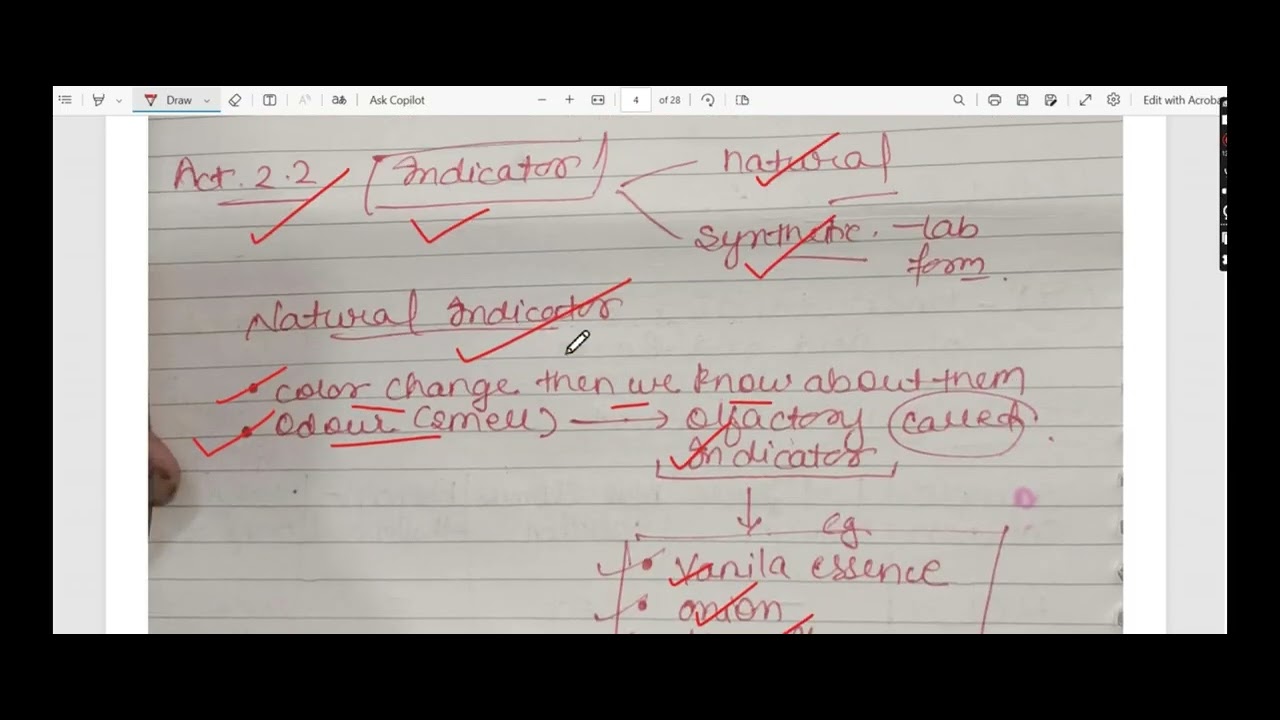 Draw
Ask Copilot
4 of 28
Edit with Acroba
Act. 2.2 Indicator natural
synthetic. - lab
form.
Natural Indicator
• color change then we know about them
• Odour (smell) → olfactory called.
Indicator
eg.
• vanila essence
• onion